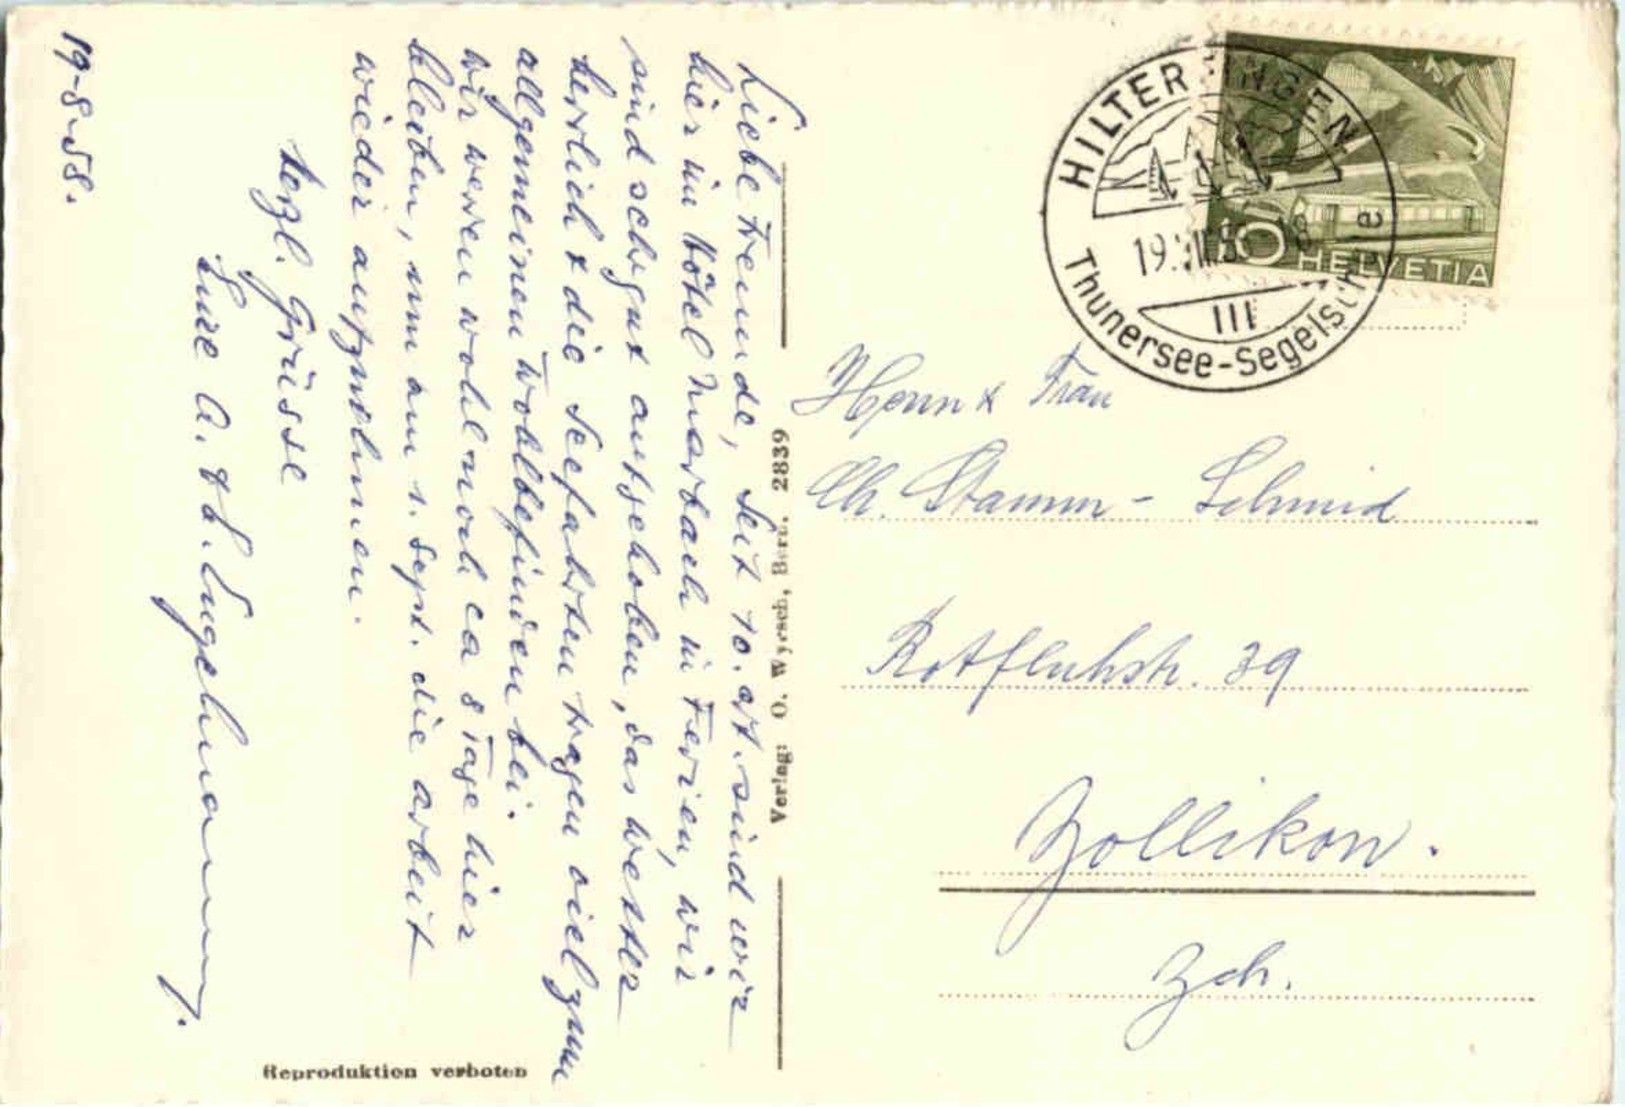 19-8-58.
Liebe Freunde, Seit 10. crt. sind wir
hier im Hôtel Marbach in Ferien, wir
sind sehr gut aufgehoben, das Wetter
herrlich & die Seefahrten tragen viel zum
allgemeinen Wohlbefinden bei.
Wir werden wohl noch ca 8 Tage hier
bleiben, um am 1. Sept. die Arbeit
wieder aufzunehmen.
Herzl. Grüsse
Eure A. & L. Engelmann.
Reproduktion verboten
Verlag: O. Wyrsch, Bern. 2839
HILTERFINGEN
19.VIII.58
III
Thunersee-Segelschule
10 HELVETIA
Herrn & Frau
Ch. Stamm - Schmid
Rotfluhstr. 39
Zollikon.
Zch.